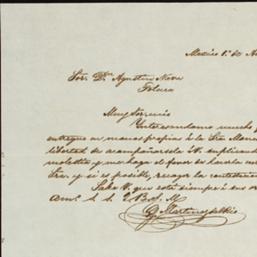 Mexico 1º de
Sor. Dn. Agustin Neve
Toluca
Muy Sor. mio
Interesandome mucho
entregue en manos propias á la Sra. Maria
libertad de acompañarsela á V. suplicando
molestia y me haga el favor de hacerla
Sra. y si es posible, recoger la contestacion
Sabe V. que está siempre á sus
Q. B. S. M.
Martinez del Rio